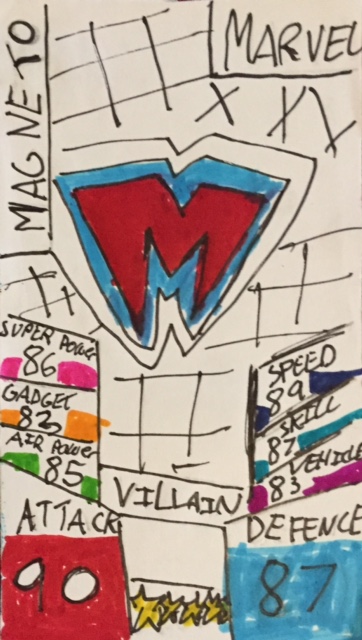 MARVEL
MAGNETO
M
SUPER POWER
86
GADGET
82
AIR POWER
85
SPEED
89
SKILL
87
VEHICLE
83
VILLAIN
ATTACK
90
DEFENCE
87